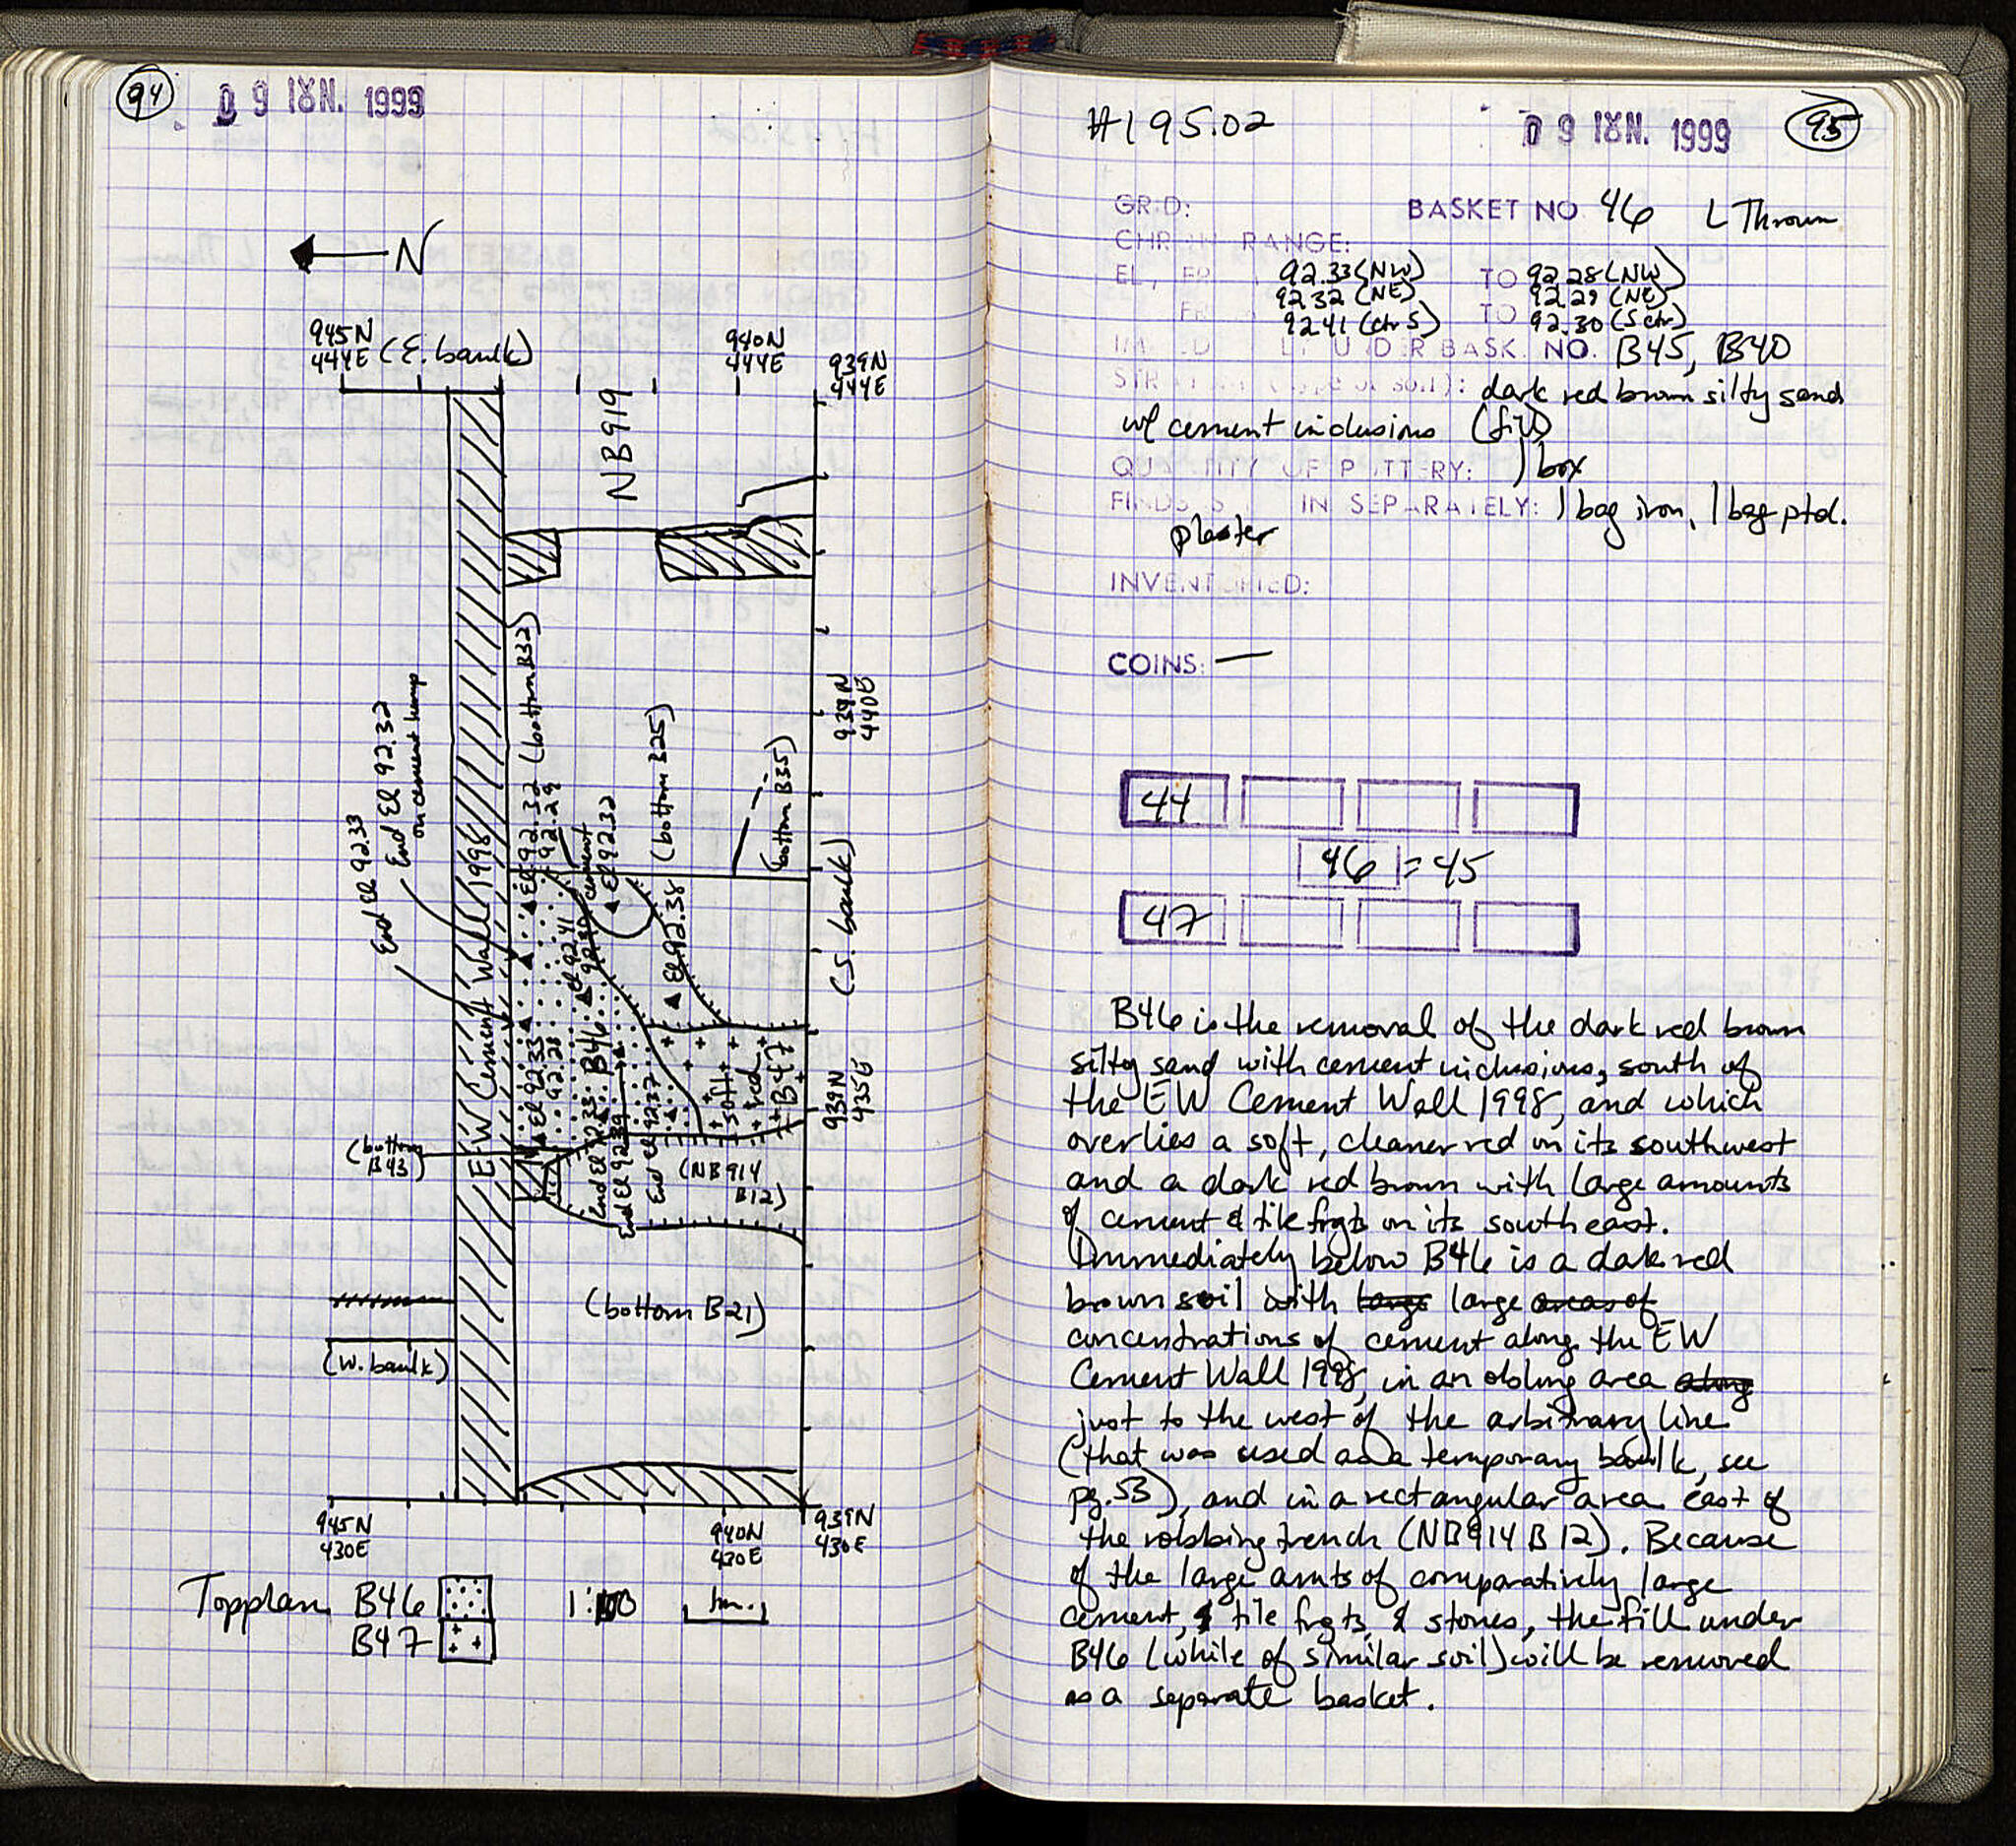 94
09 ΙΟΥΝ. 1999
N
945N
444E (E. baulk)
940N
444E
939N
444E
NB919
(bottom B32)
End El 92.33
End El 92.32
on cement lump
EW Cement Wall 1998
El 92.32
92.29
cement
El 92.32
(bottom B25)
(bottom B35)
939N
440E
(S. baulk)
El 92.41
92.30
El 92.38
El 92.33
92.28
B46
End El 92.33
End El 92.39
End El 92.37
soft
red
B47
939N
435E
(bottom
B43)
(NB914
B12)
(bottom B21)
(W. baulk)
945N
430E
940N
430E
939N
430E
Topplan B46
B47
1m.
#195.02
09 ΙΟΥΝ. 1999
95
GRID: BASKET NO 46 L Thrown
CHRON RANGE:
92.33 (NW) TO 92.28 (NW)
92.32 (NE) 92.29 (NE)
92.41 (ctr S) TO 92.30 (S ctr)
UNDER BASK. NO. B45, B40
dark red brown silty sand
w/ cement inclusions (fill)
QUANTITY OF POTTERY: 1 box
FINDS IN SEPARATELY: 1 bag iron, 1 bag ptd.
plaster
INVENTORIED:
COINS: —
44
46 = 45
47
B46 is the removal of the dark red brown
silty sand with cement inclusions, south of
the EW Cement Wall 1998, and which
overlies a soft, cleaner red on its southwest
and a dark red brown with large amounts
of cement & tile frgts on its southeast.
Immediately below B46 is a dark red
brown soil with large large areas of
concentrations of cement along the EW
Cement Wall 1998, in an oblong area along
just to the west of the arbitrary line
(that was used as a temporary baulk, see
pg. 53), and in a rectangular area east of
the robbing trench (NB914 B12). Because
of the large amts of comparatively large
cement, tile frgts, & stones, the fill under
B46 (while of similar soil) will be removed
as a separate basket.